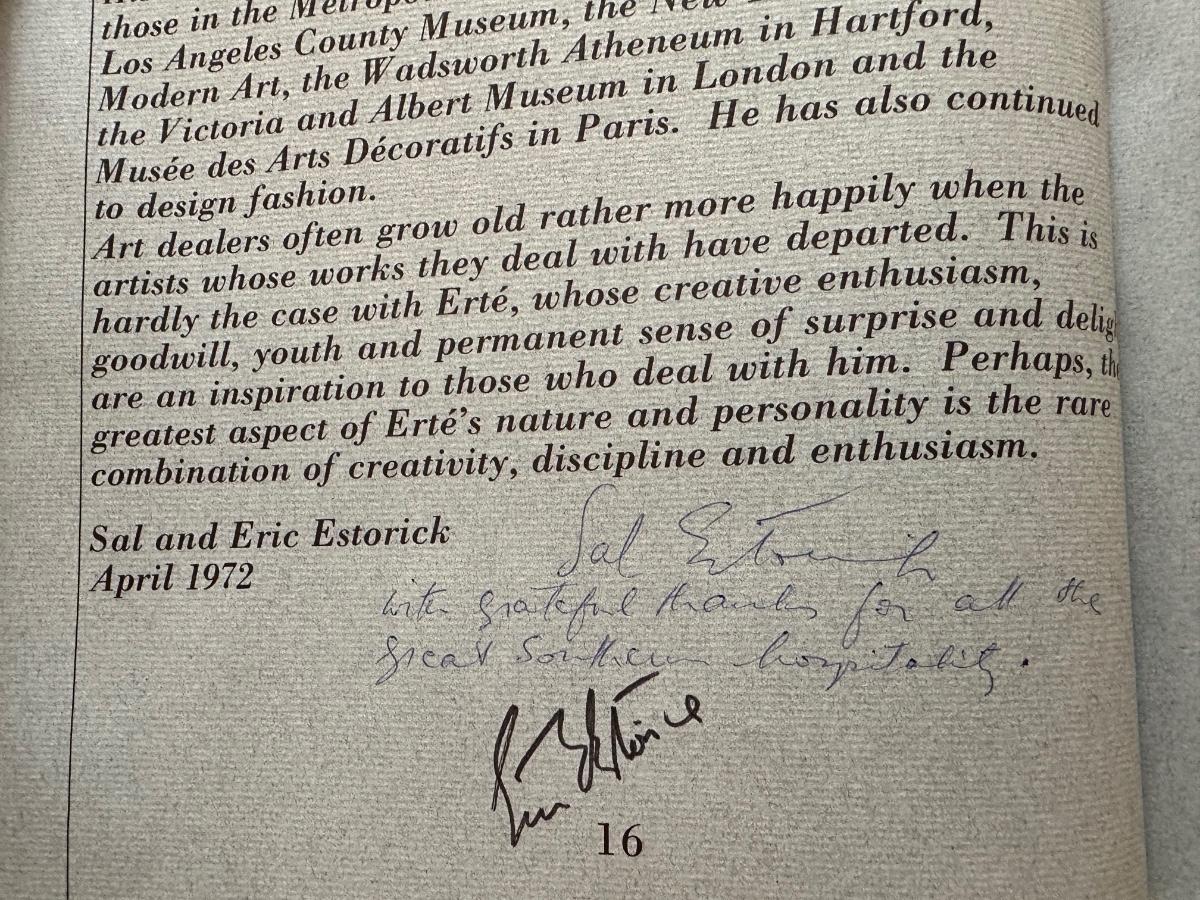 those in the
Los Angeles County Museum, the New
Modern Art, the Wadsworth Atheneum in Hartford,
the Victoria and Albert Museum in London and the
Musée des Arts Décoratifs in Paris. He has also continued
to design fashion.
Art dealers often grow old rather more happily when the
artists whose works they deal with have departed. This is
hardly the case with Erté, whose creative enthusiasm,
goodwill, youth and permanent sense of surprise and delig
are an inspiration to those who deal with him. Perhaps, th
greatest aspect of Erté's nature and personality is the rare
combination of creativity, discipline and enthusiasm.
Sal and Eric Estorick
April 1972
Sal Estorick
with grateful thanks for all the
great Southern hospitality.
Eric Estorick
16